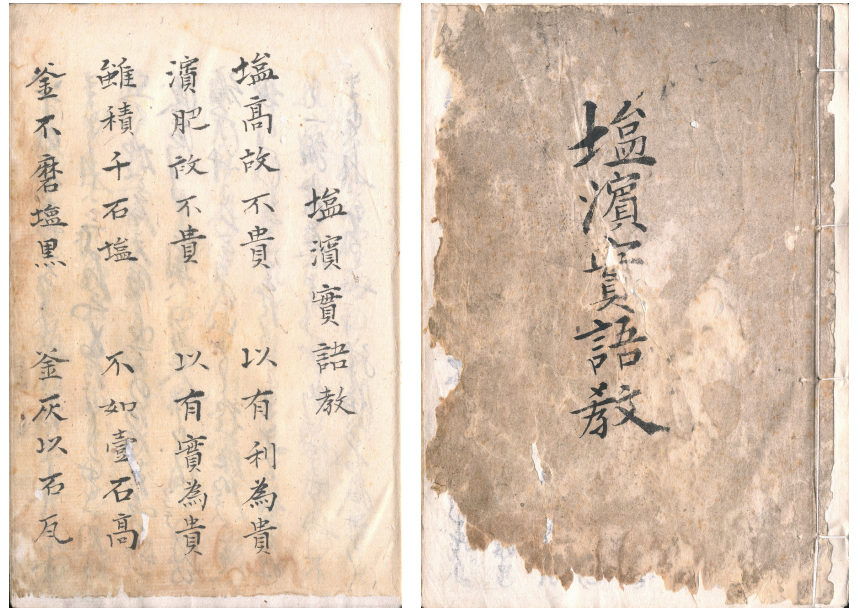 塩濱實語教
塩濱實語教
塩髙故不貴 以有利為貴
濱肥故不貴 以有實為貴
雖積千石塩 不如壹石髙
釜不磨塩黒 釜灰以石瓦